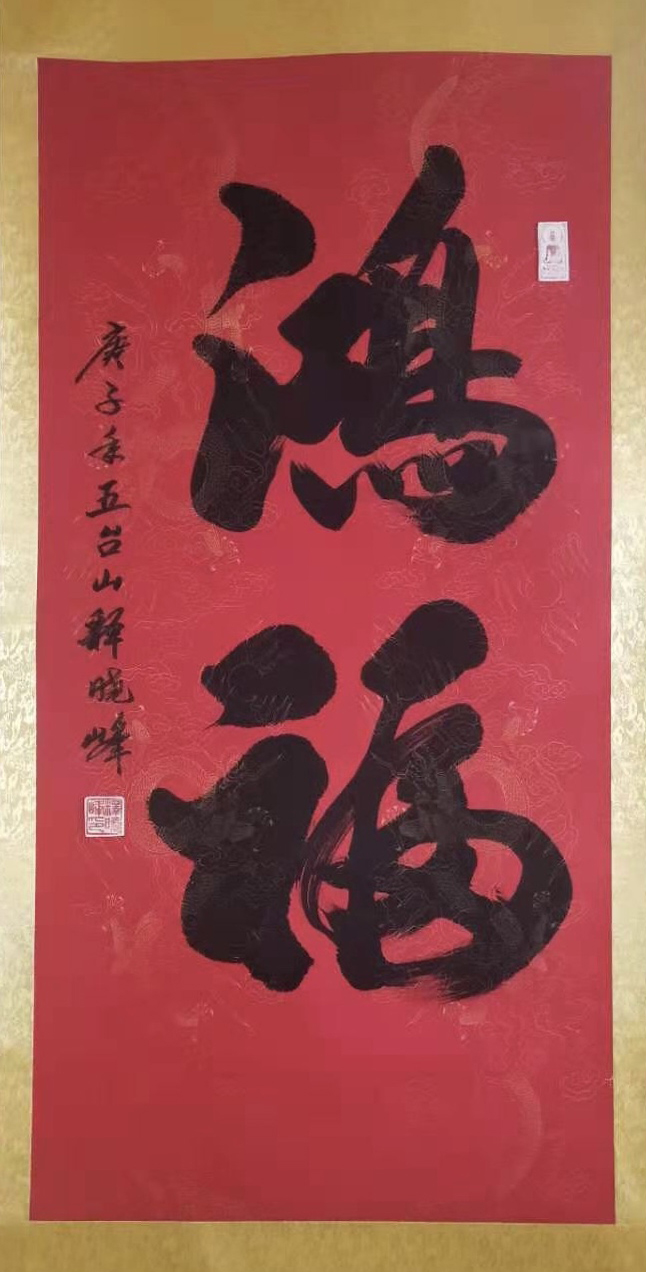 鸿福
庚子年五台山释晓峰